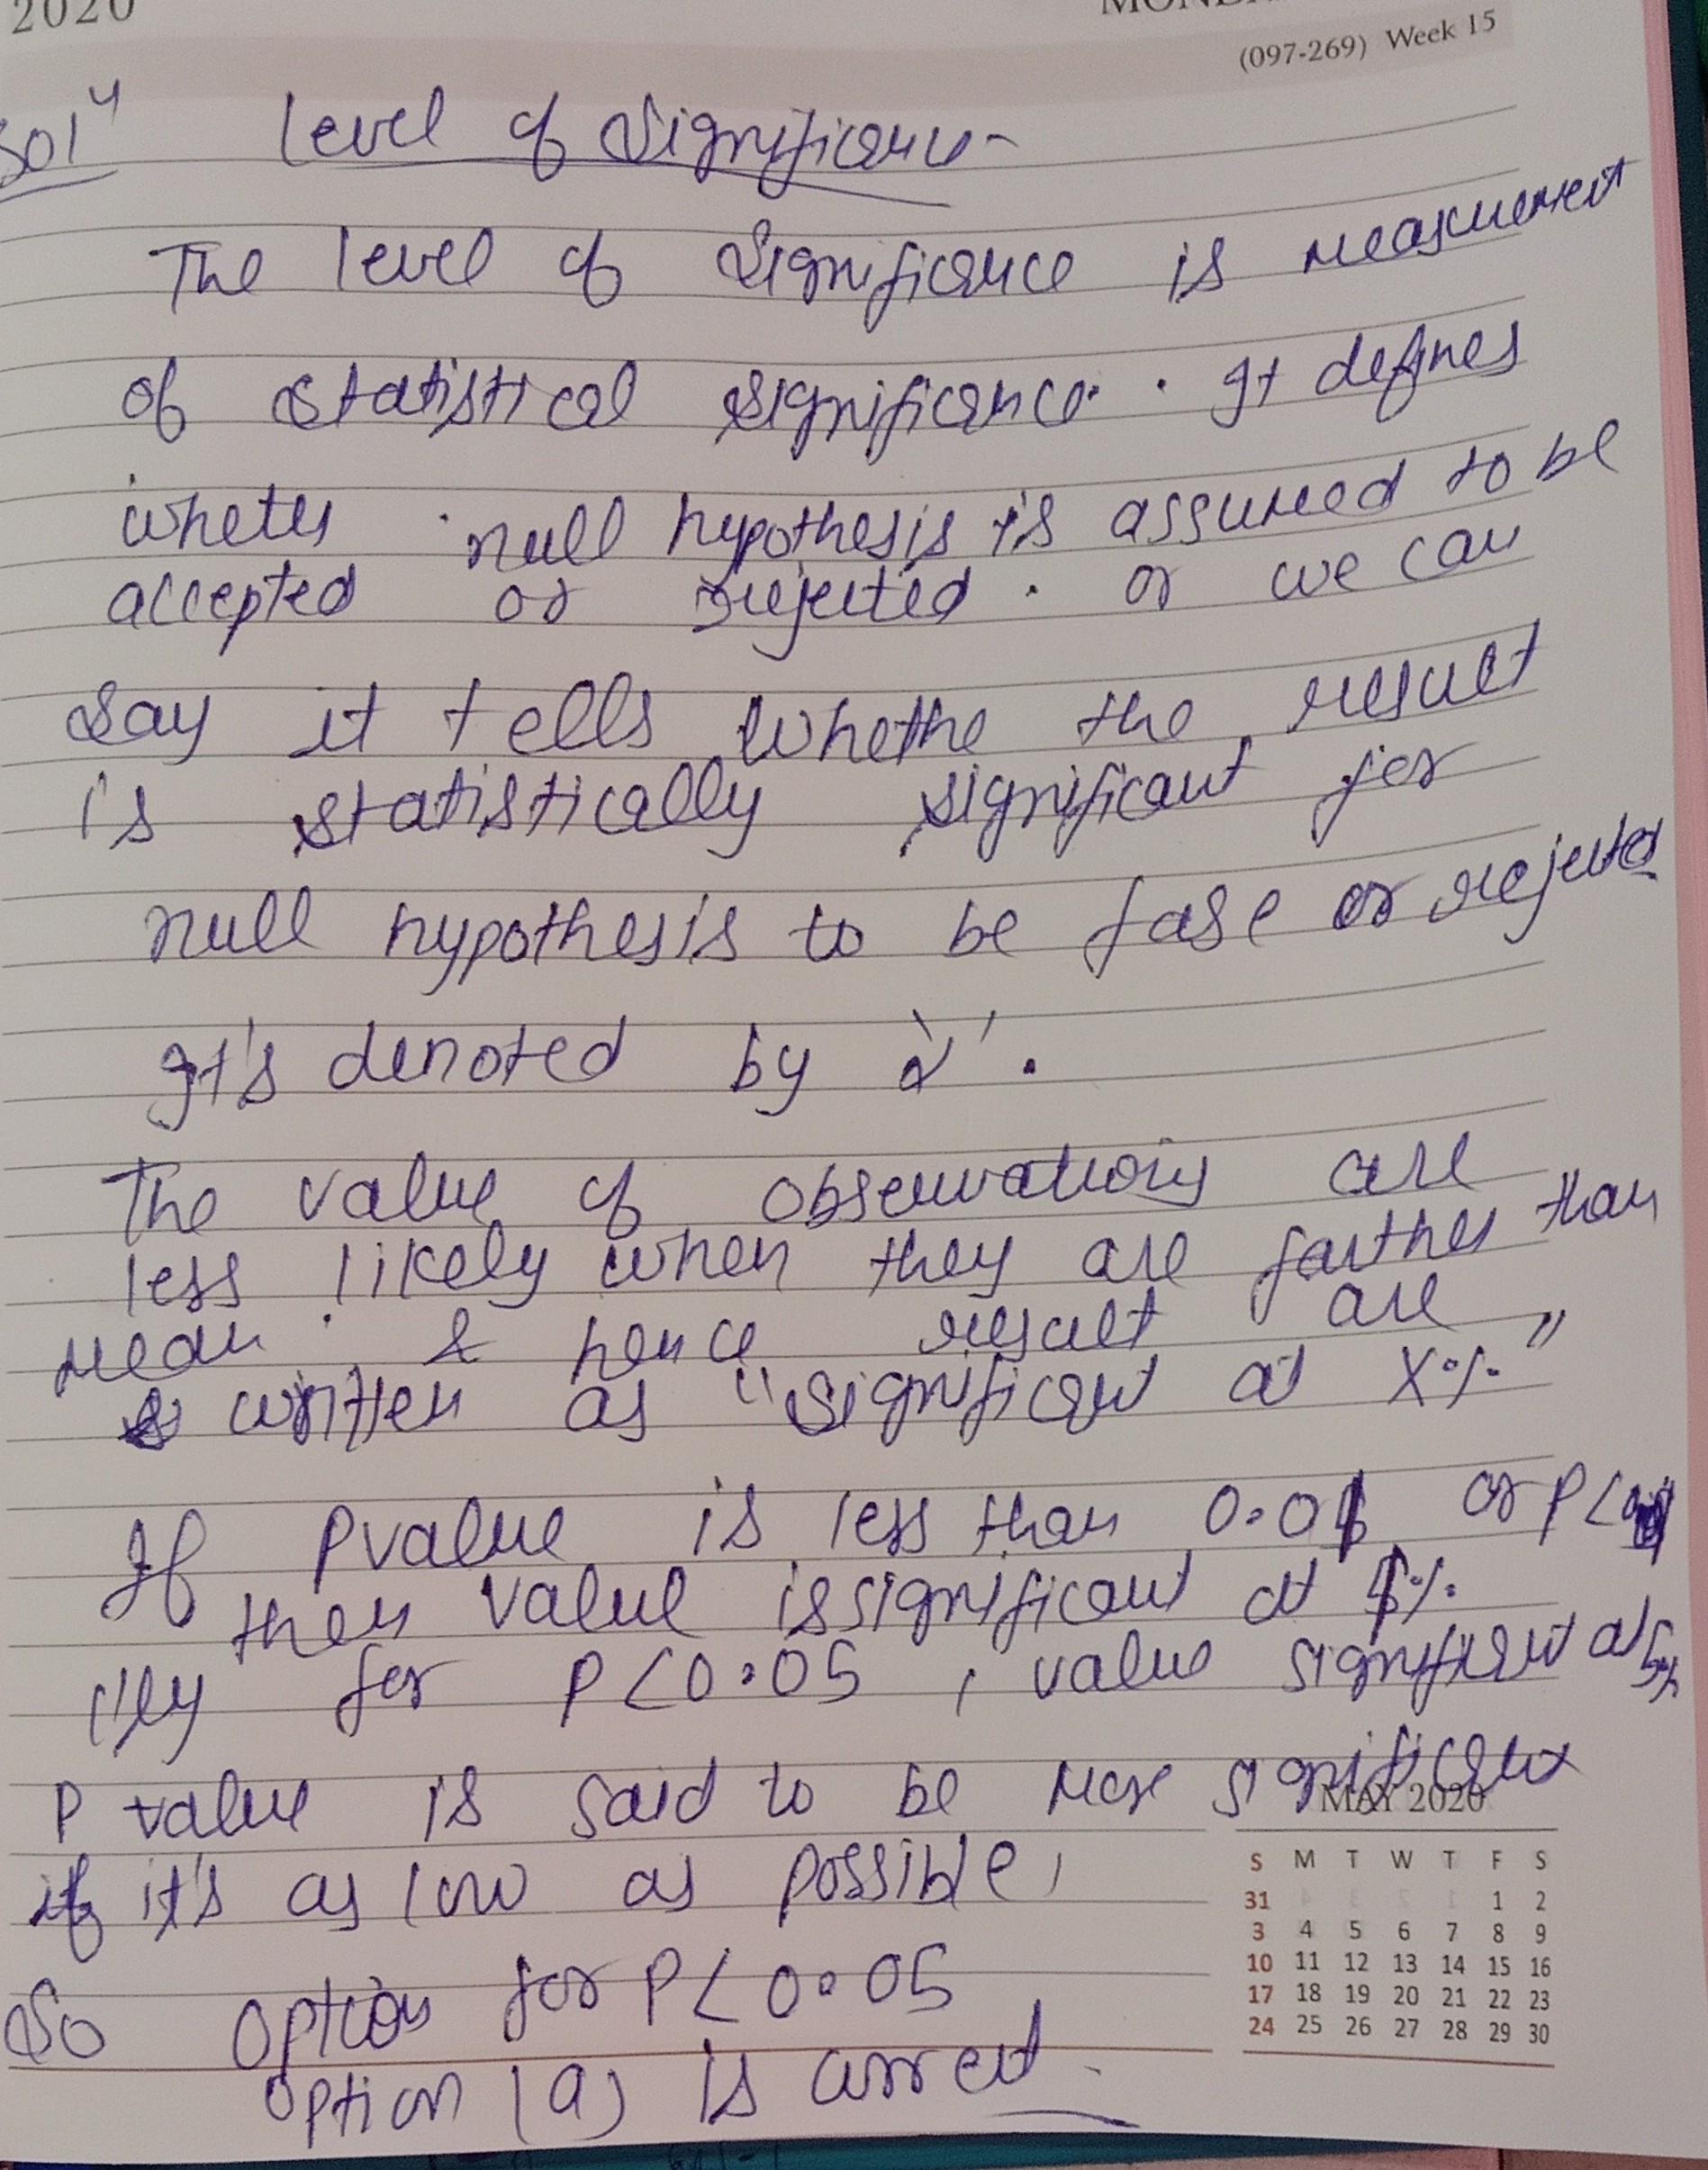 2020
(097-269) Week 15
Solⁿ Level of Significance
The level of Significance is measurement
of statistical significance. It defines
wheter null hypothesis is assumed to be
accepted or rejected. or we can
say it tells whethe the result
is statistically significant for
null hypothesis to be fase or rejected
It's denoted by 'α'.
The value of observations are
less likely when they are farther than
mean. & hence result are
written as "significant at X%"
If pvalue is less than 0.01 or P<
then value is significant at 1%
111ly for P<0.05, value significant at 5%
P value is said to be more significant
if it's as low as possible,
So option for P<0.05
option (a) is correct.
MAY 2020
S M T W T F S
31 1 2
3 4 5 6 7 8 9
10 11 12 13 14 15 16
17 18 19 20 21 22 23
24 25 26 27 28 29 30